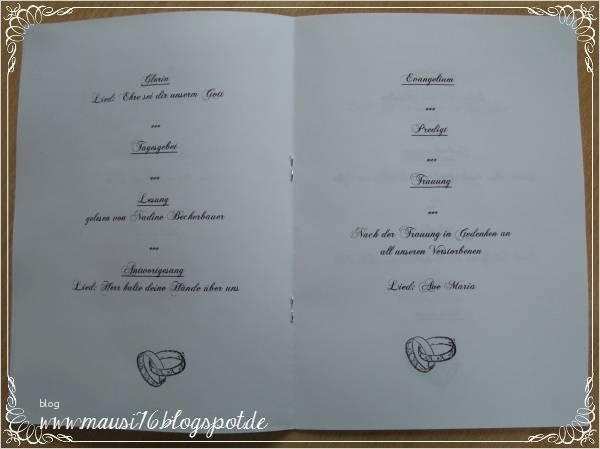 Gloria
Lied: Ehre sei dir unserm Gott
***
Tagesgebet
***
Lesung
gelesen von Nadine Beckerbauer
***
Antwortgesang
Lied: Herr halte deine Hände über uns
Evangelium
***
Predigt
***
Trauung
***
Nach der Trauung in Gedenken an
all unseren Verstorbenen
Lied: Ave Maria
blog
www.mausi76.blogspot.de